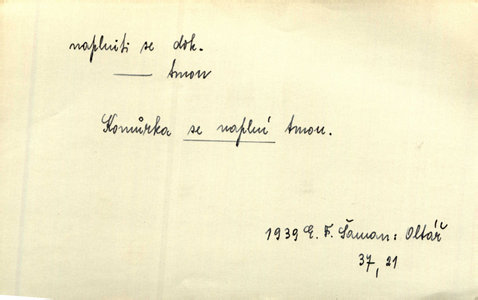 naplniti se dok.
—— tmou
Komůrka se naplní tmou.
1939 E. F. Šaman: Oltář
37, 21